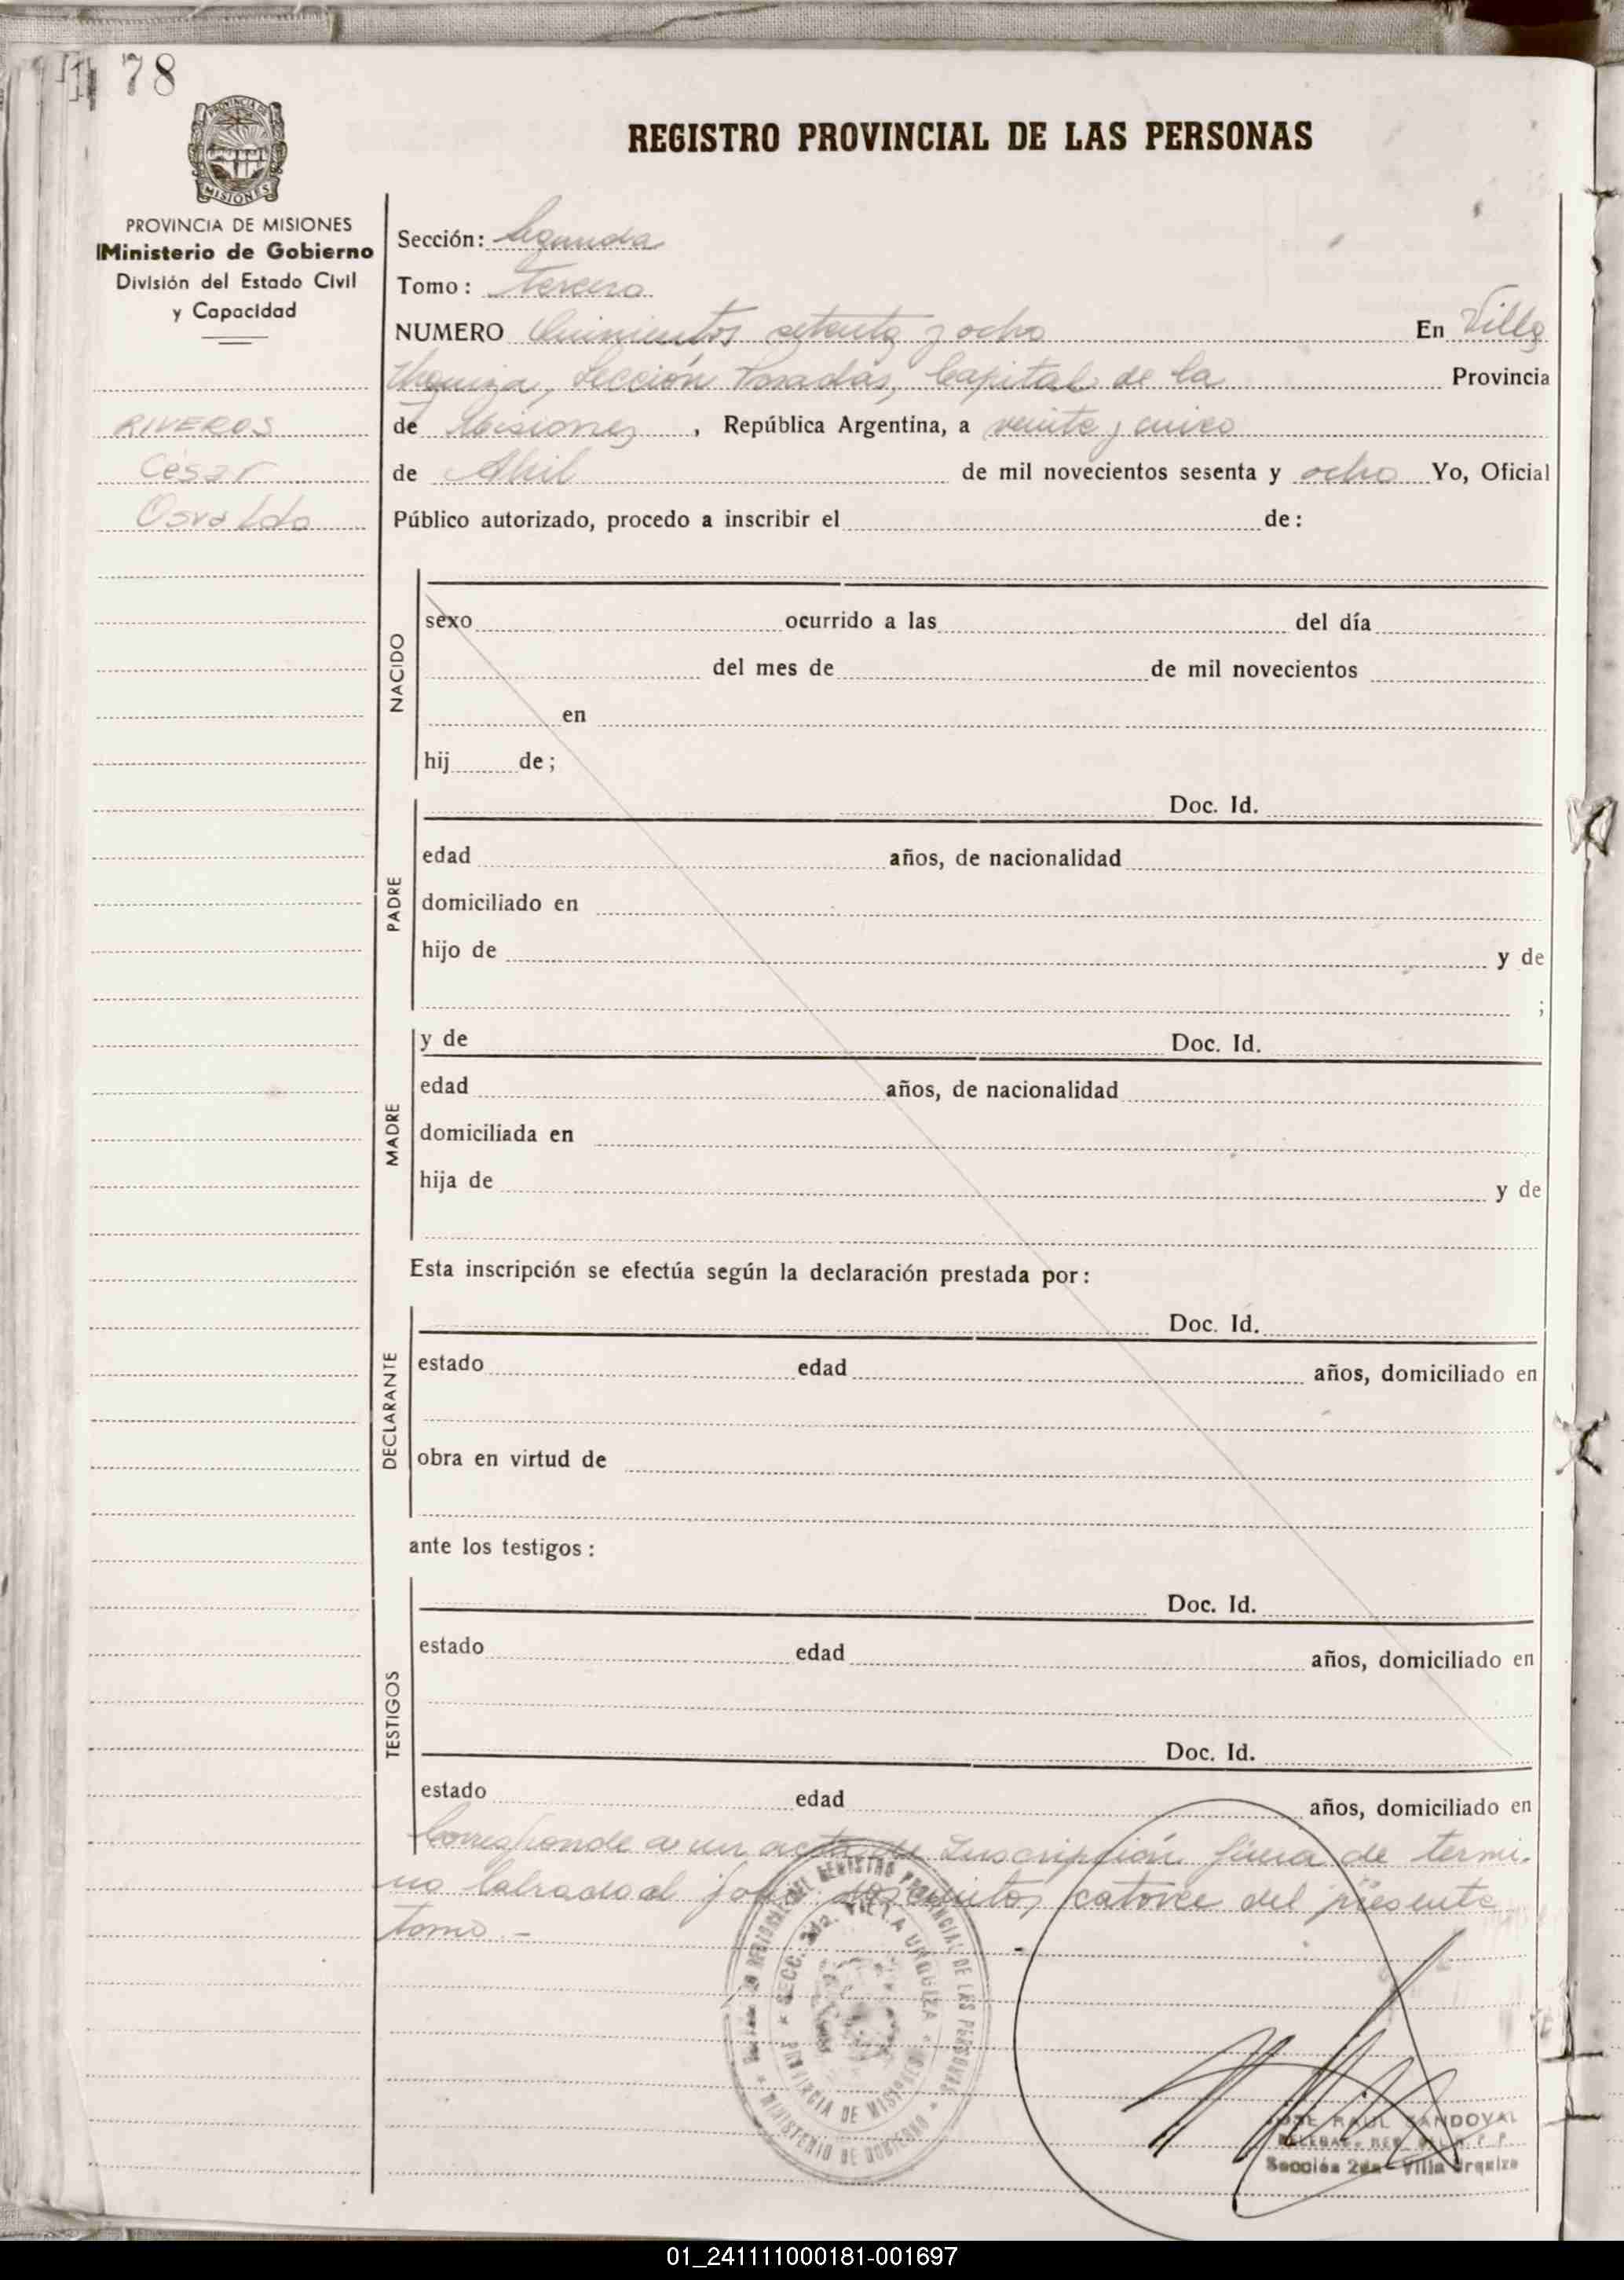 78
REGISTRO PROVINCIAL DE LAS PERSONAS
MISIONES
PROVINCIA DE MISIONES
Ministerio de Gobierno
División del Estado Civil
y Capacidad
RIVEROS
César
Osvaldo
Sección: Segunda
Tomo: Tercero
NUMERO Quinientos setenta y ocho En Villa
Urquiza, Sección Posadas, Capital de la Provincia
de Misiones, República Argentina, a veinte y cinco
de Abril de mil novecientos sesenta y ocho Yo, Oficial
Público autorizado, procedo a inscribir el de:
NACIDO
sexo ocurrido a las del día
del mes de de mil novecientos
en
hij de;
PADRE
Doc. Id.
edad años, de nacionalidad
domiciliado en
hijo de y de
;
MADRE
y de Doc. Id.
edad años, de nacionalidad
domiciliada en
hija de y de
Esta inscripción se efectúa según la declaración prestada por:
DECLARANTE
Doc. Id.
estado edad años, domiciliado en
obra en virtud de
ante los testigos:
TESTIGOS
Doc. Id.
estado edad años, domiciliado en
Doc. Id.
estado edad años, domiciliado en
Corresponde a un acta de Inscripción fuera de termi-
no labrado al folio doscientos catorce del presente
tomo.-
REGISTRO PROVINCIAL DE LAS PERSONAS
* MINISTERIO DE GOBIERNO *
* SECC. 2da. VILLA URQUIZA *
PROVINCIA DE MISIONES
JOSE RAUL SANDOVAL
Sección 2da - Villa Urquiza
01_241111000181-001697